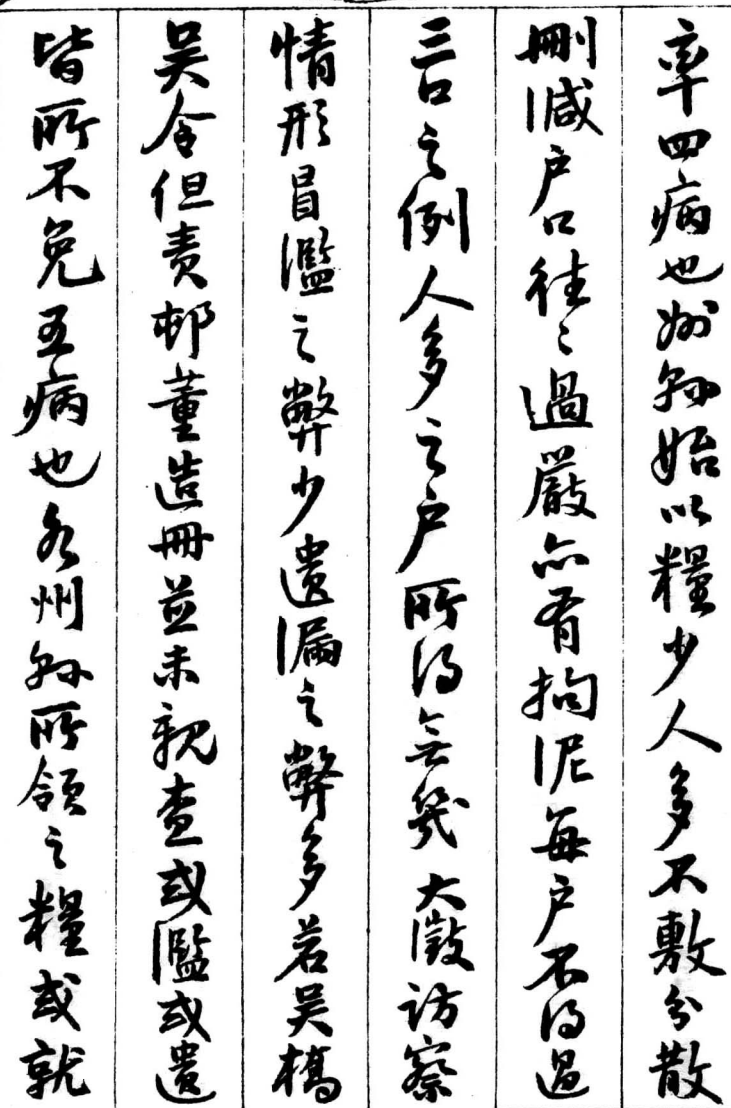 率四病也州縣始以糧少人多不敷分散
刪減户口往〻過嚴亦有拘泥每户不得過
三口之例人多之户所得無幾大澂訪察
情形冒濫之弊少遺漏之弊多若吳橋
吳令但責邨董造冊並未親查或濫或遺
皆所不免五病也各州縣所領之糧或就